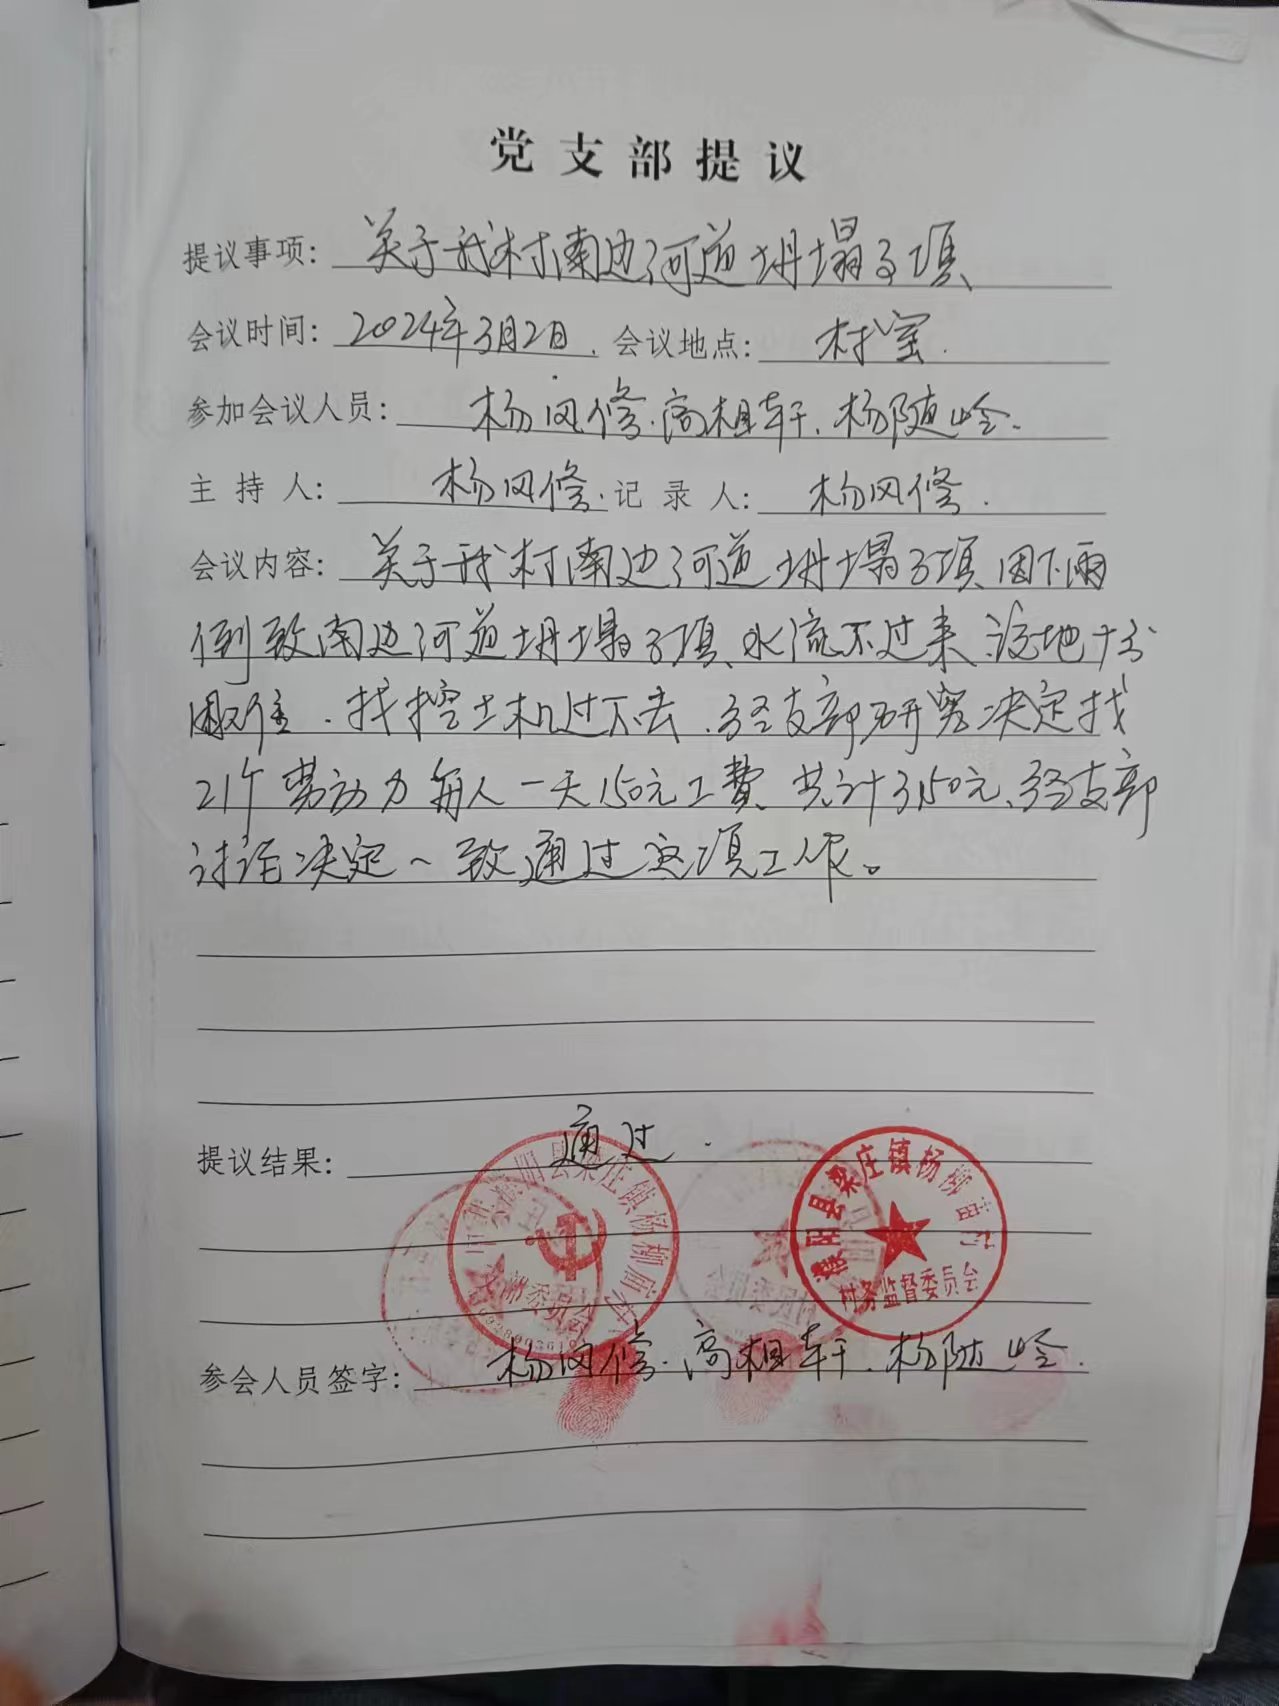 党支部提议
提议事项: 关于我村南边河道坍塌事项
会议时间: 2024年3月2日. 会议地点: 村室.
参加会议人员: 杨风修.高相轩.杨随岭.
主持人: 杨风修.记录人: 杨风修.
会议内容: 关于我村南边河道坍塌事项、因下雨
倒致南边河道坍塌事项、水流不过来、浇地十分
困难.找挖土机过不去.经支部研究决定找
21个劳动力每人一天150元工费、共计3150元、经支部
讨论决定一致通过这项工作。
提议结果: 通过.
濮阳县梁庄镇杨柳
村务监督委员会
支部委员会
参会人员签字: 杨风修.高相轩.杨随岭.